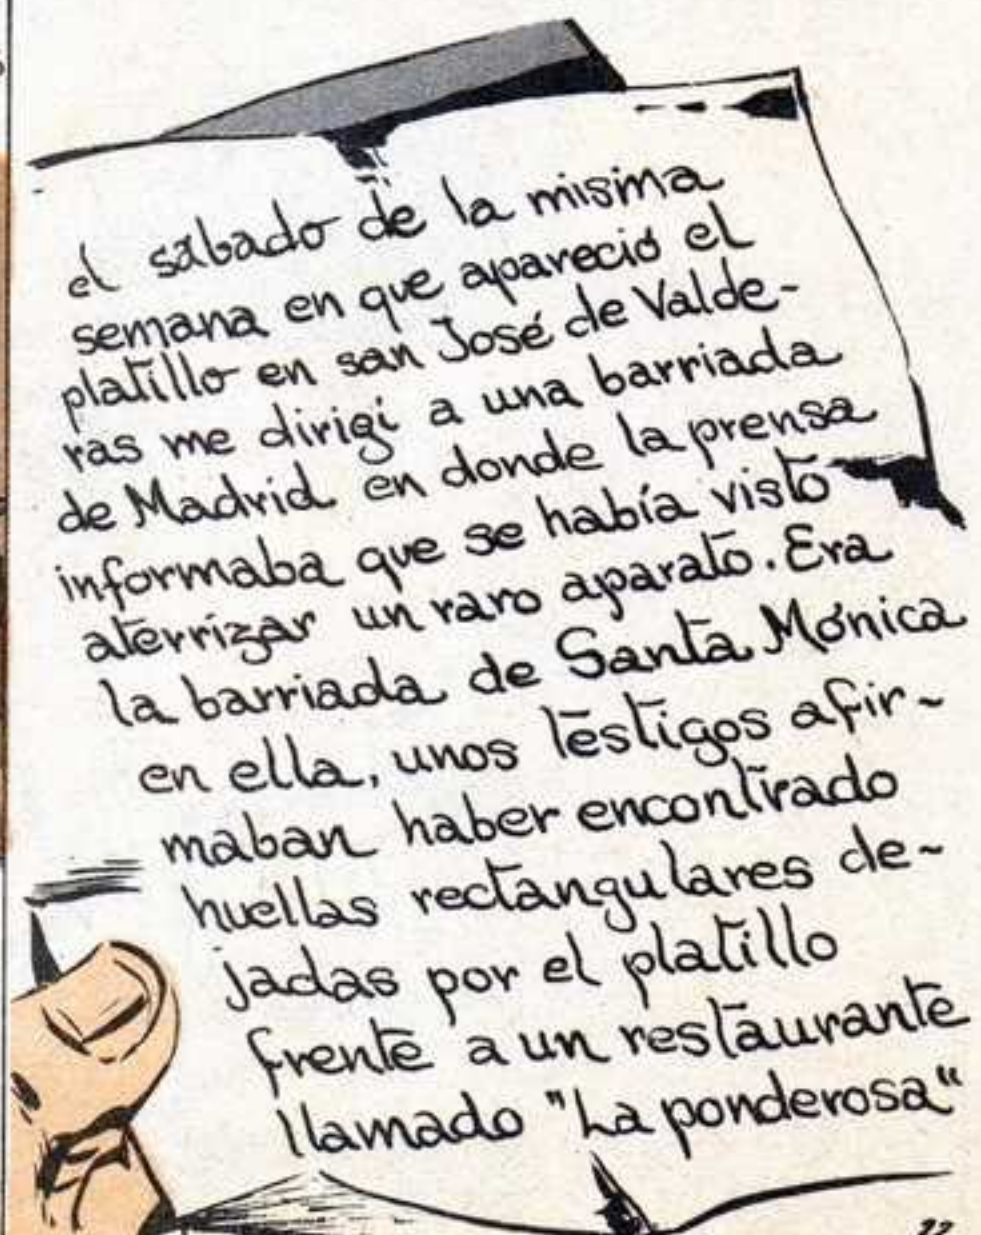 el sábado de la misma
semana en que apareció el
platillo en san José de Valde-
ras me dirigí a una barriada
de Madrid en donde la prensa
informaba que se había visto
aterrizar un raro aparato. Era
la barriada de Santa Mónica
en ella, unos testigos afir-
maban haber encontrado
huellas rectangulares de-
jadas por el platillo
frente a un restaurante
llamado "La ponderosa"
22